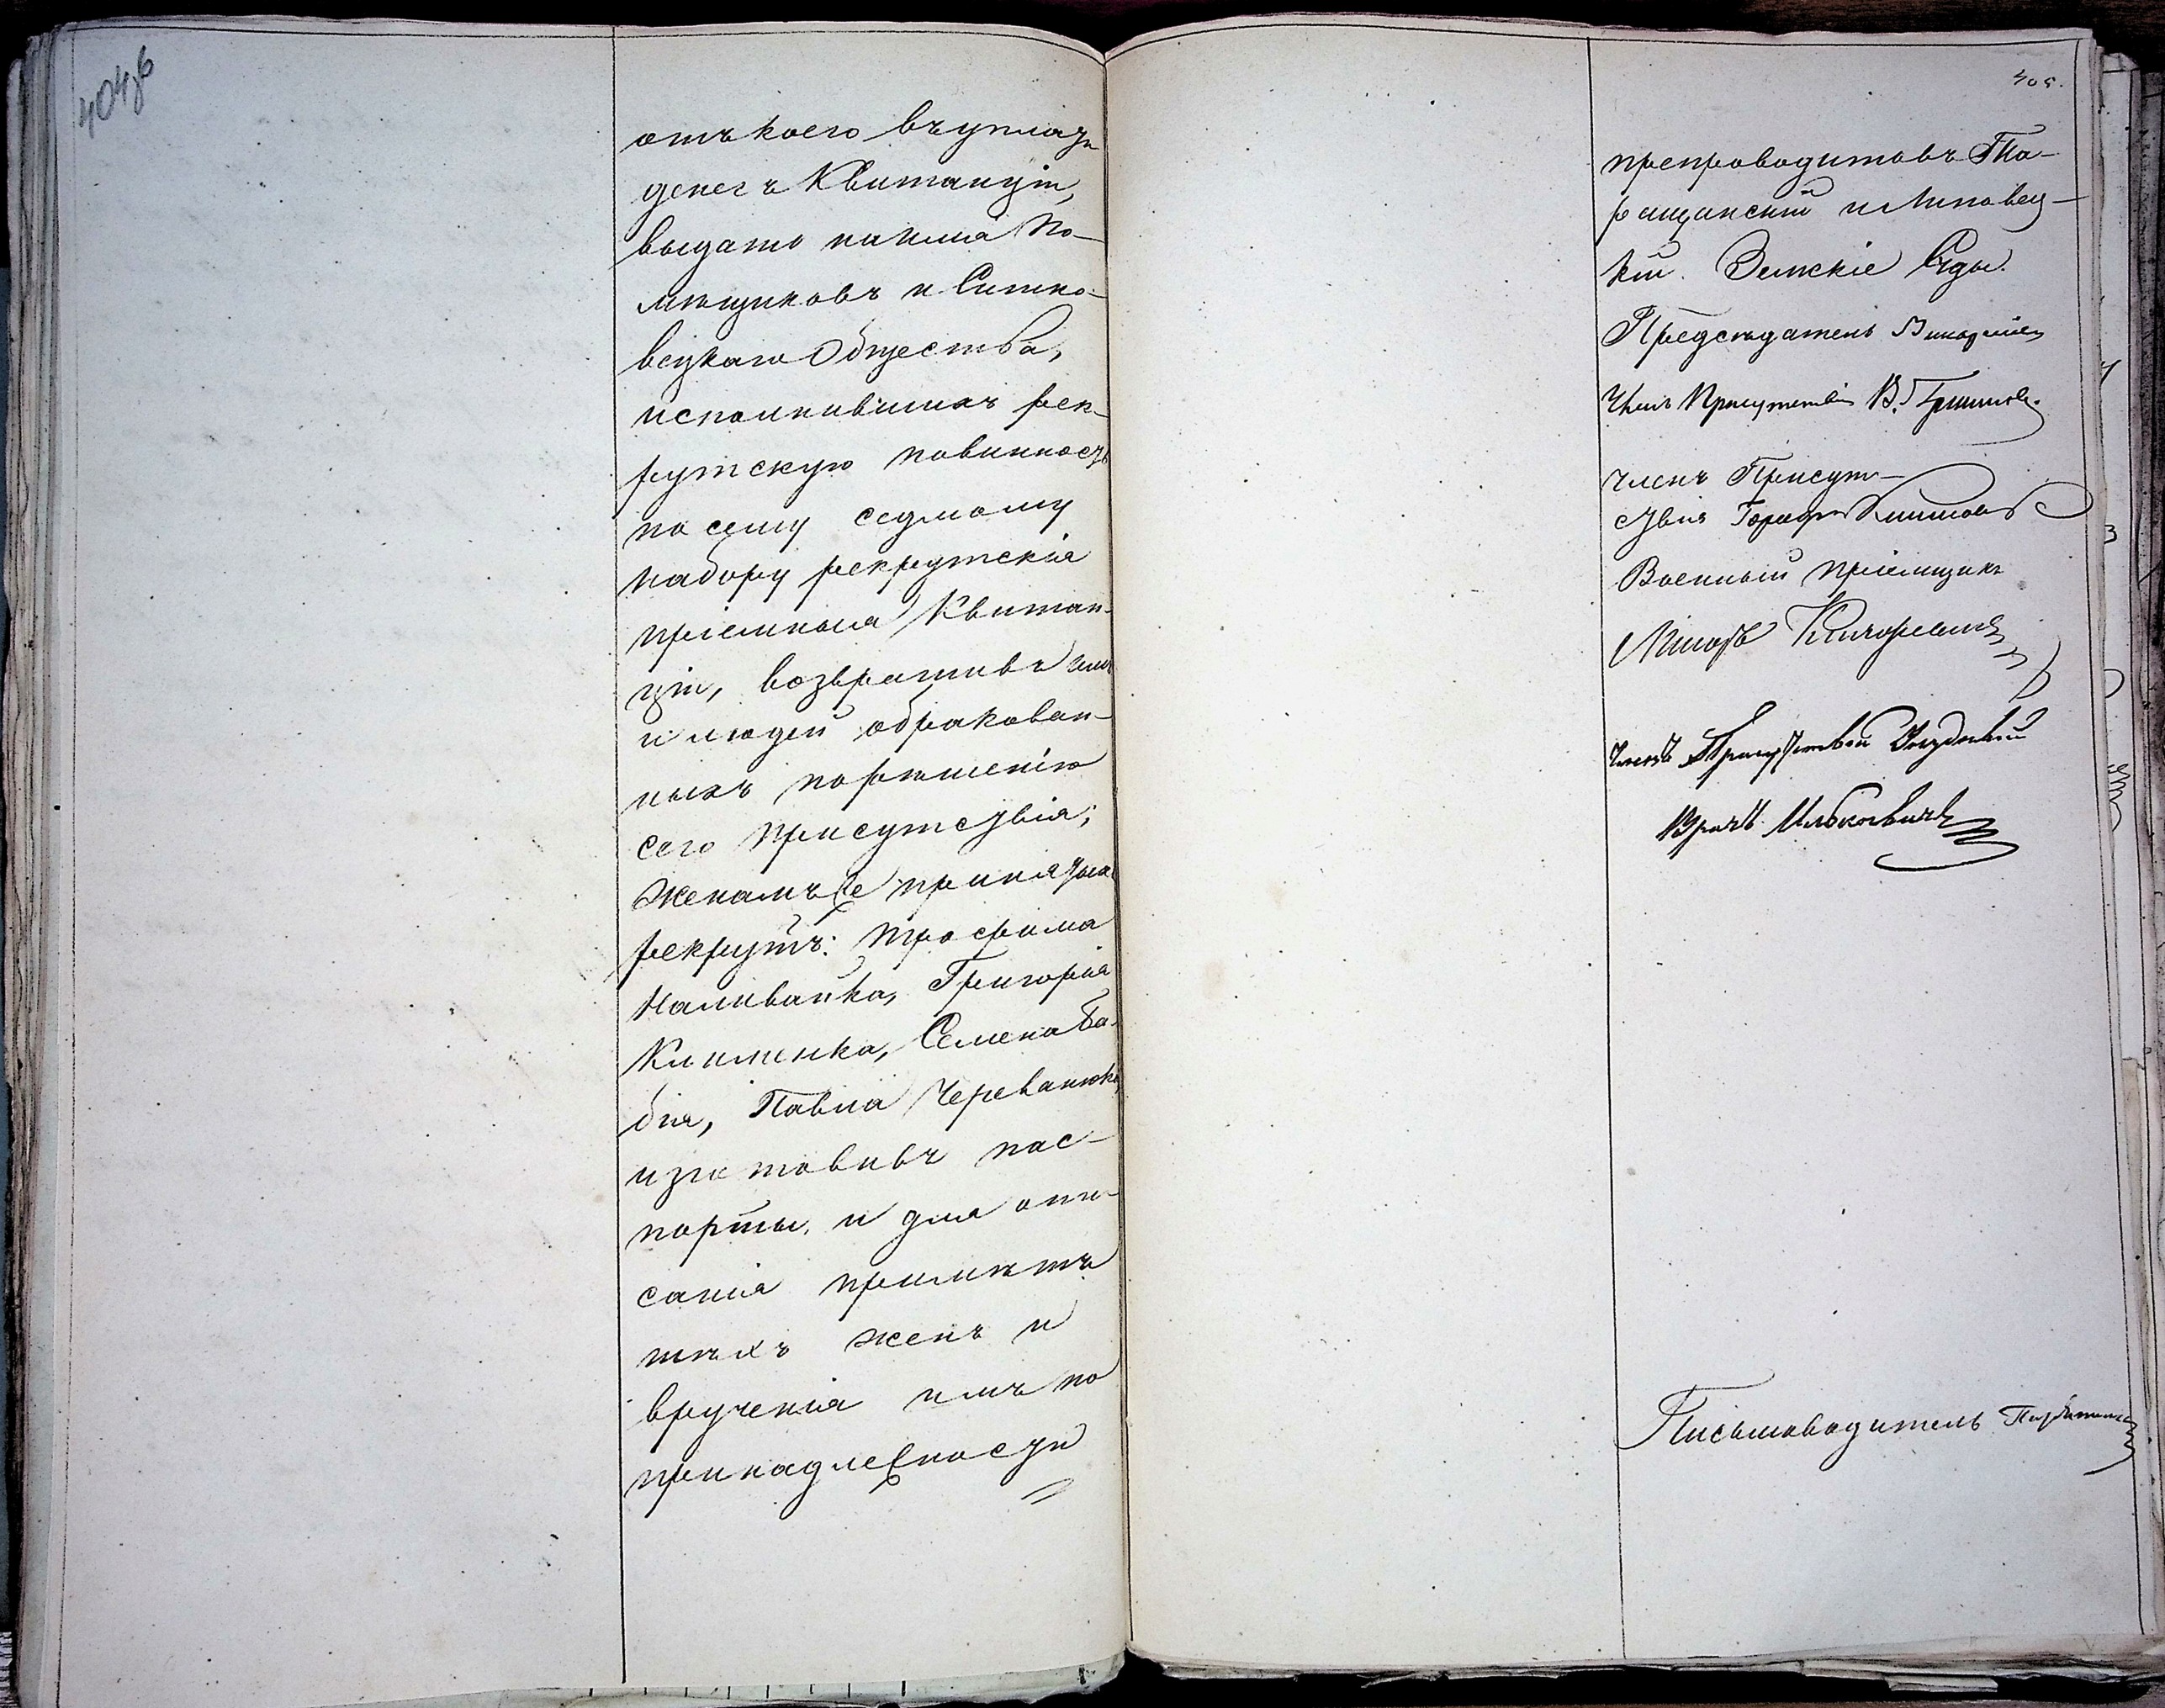 404об
отъ коего въ уплатѣ
денегъ квитанціи,
выдать на имя По-
мѣщиковъ и Ситко-
вецкаго Общества,
исполнившихъ рек-
рутскую повинность
по сему седмому
набору рекрутскія
пріемныя Квитан-
ціи, возвративъ имъ
и людей обракован-
ныхъ по рѣшенію
сего присутствія;
женамъ же принятыхъ
рекрутъ: Трофима
Наливайка, Григорія
Клименка, Семена Ба-
бія, Павла Череванюка,
изготовивъ пас-
порты, и для опи-
санія примѣтъ
тѣхъ женъ и
врученія имъ по
принадлежности
405.
препроводить въ Та-
ращанскій и Липовец-
кій Земскіе Суды.
Предсѣдатель
Членъ Присутствія В.
Членъ Присут-
ствія
Военный пріемщикъ
Членъ Присутствія Уѣздный
Врачъ
Письмоводитель